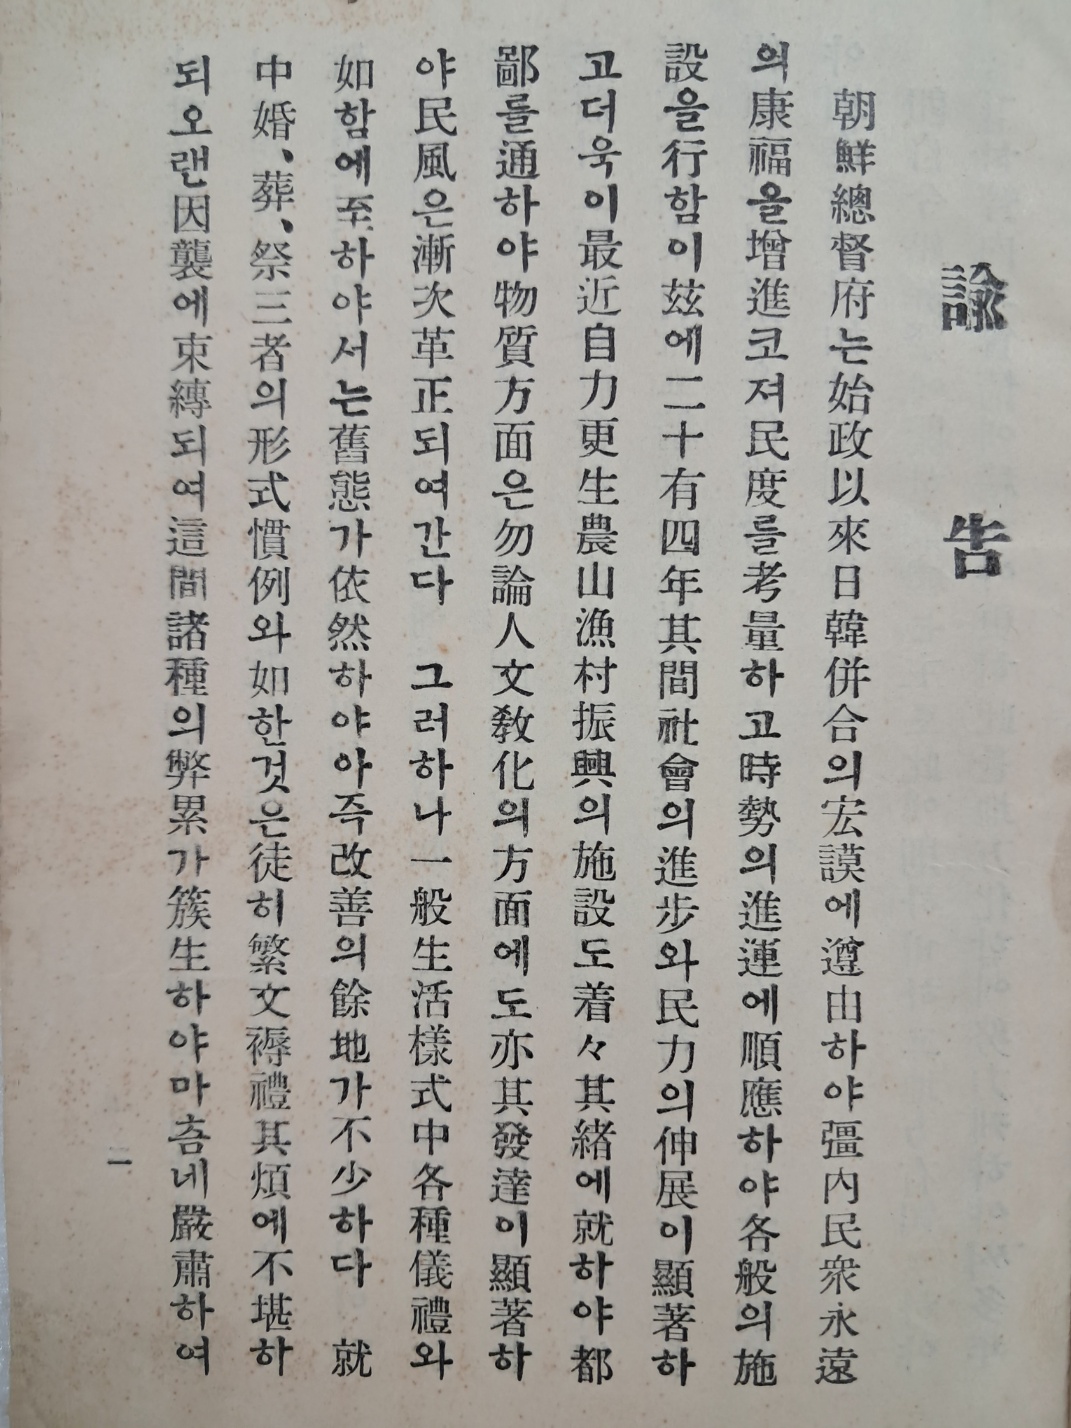 諭告
朝鮮總督府는始政以來日韓併合의宏謨에遵由하야彊內民衆永遠
의康福을增進코저民度를考量하고時勢의進運에順應하야各般의施
設을行함이玆에二十有四年其間社會의進步와民力의伸展이顯著하
고더욱이最近自力更生農山漁村振興의施設도着々其緖에就하야都
鄙를通하야物質方面은勿論人文敎化의方面에도亦其發達이顯著하
야民風은漸次革正되여간다 그러하나一般生活樣式中各種儀禮와
如함에至하야서는舊態가依然하야아즉改善의餘地가不少하다 就
中婚、葬、祭三者의形式慣例와如한것은徒히繁文褥禮其煩에不堪하
되오랜因襲에束縛되여這間諸種의弊累가簇生하야마츰네嚴肅하여
一